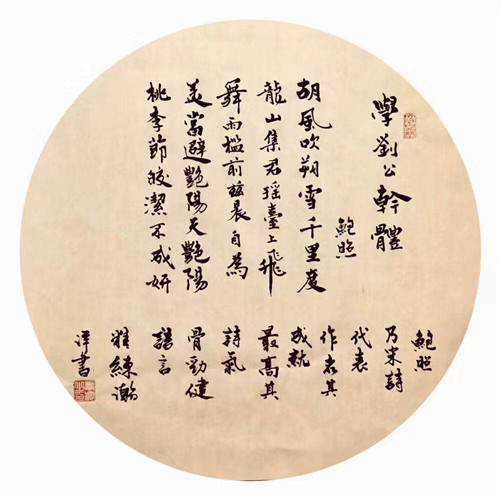 學劉公幹體
鮑照
胡風吹朔雪千里度
龍山集君瑤臺上飛
舞兩楹前茲晨自為
美當避艷陽天艷陽
桃李節皎潔不成妍
鮑照
乃宋詩
代表
作者其
成就
最高其
詩氣
骨勁健
語言
精練瀚
洋書